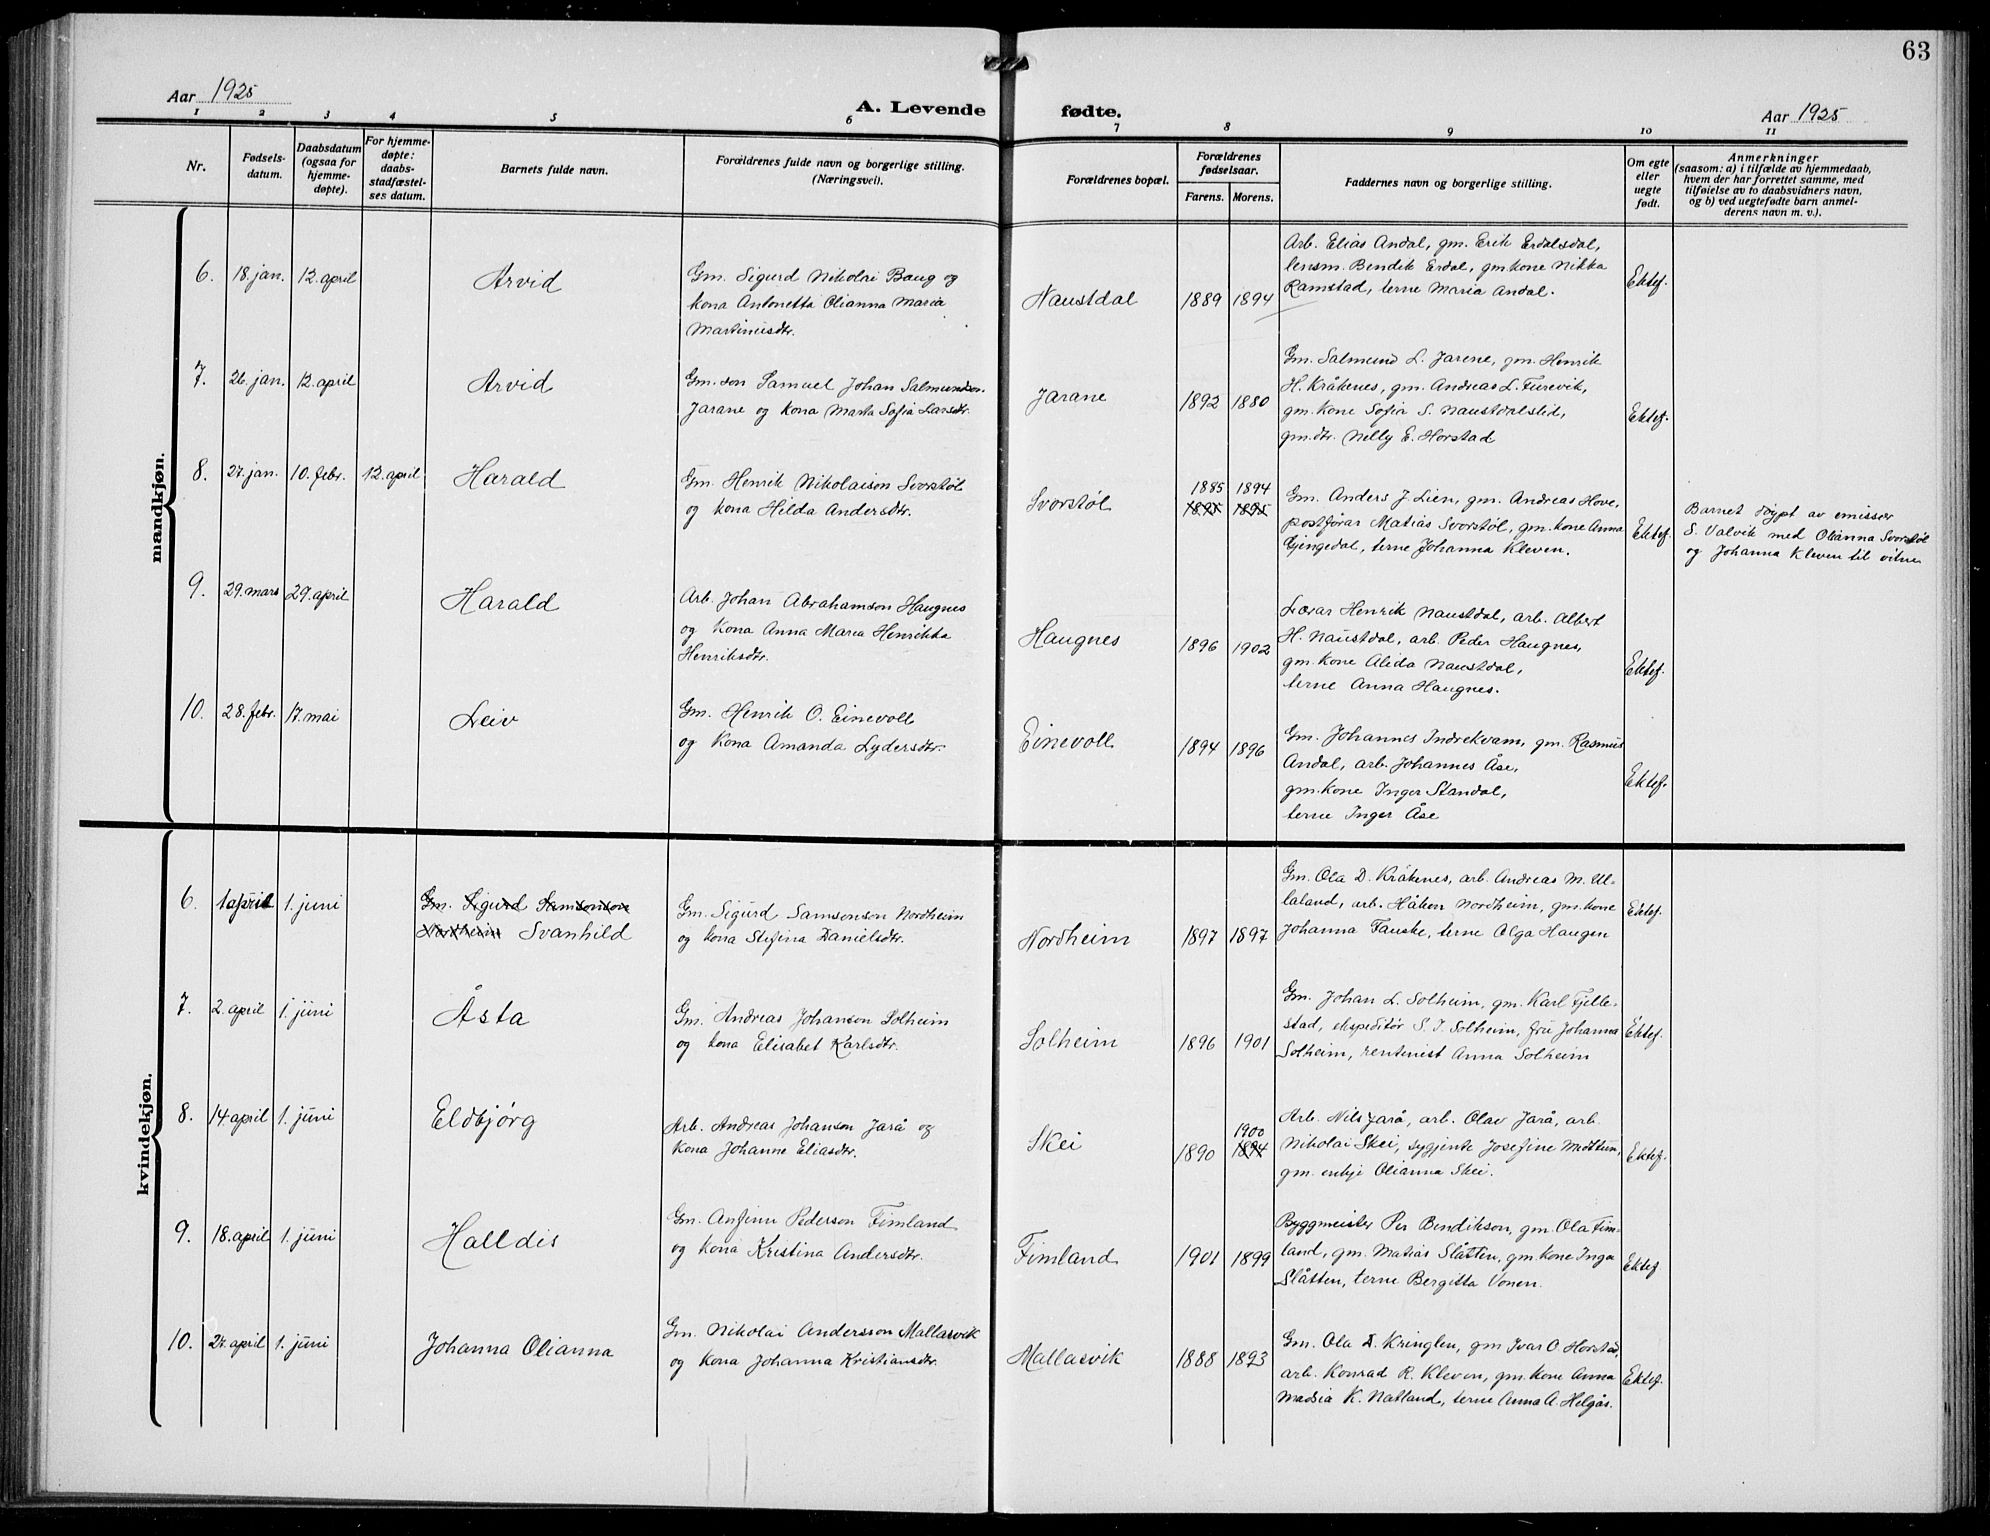 63
Aar 1925
A. Levende fødte.
Aar 1925
1 2 3 4 5 6 7 8 9 10 11
Nr.
Fødsels-
datum.
Daabsdatum
(ogsaa for
hjemme-
døpte).
For hjemme-
døpte:
daabs-
stadfæstel-
ses datum.
Barnets fulde navn.
Forældrenes fulde navn og borgerlige stilling.
(Næringsvei).
Forældrenes bopæl.
Forældrenes
fødselsaar.
Farens. Morens.
Faddernes navn og borgerlige stilling.
Om egte
eller
uegte
født.
Anmerkninger
(saasom: a) i tilfælde av hjemmedaab,
hvem der har forrettet samme, med
tilføielse av to daabsvidners navn,
og b) ved uegtefødte barn anmel-
derens navn m. v.).
mandkjøn.
6. 18. jan. 12. april Arvid
Gm. Sigurd Nikolai Baug og
kona Antonetta Olianna Maria
Martinusdtr.
Naustdal 1889 1894
Arb. Elias Andal, gm. Erik Erdalsdal,
lensm. Bendik Erdal, gm. kone Nikka
Ramstad, terne Maria Andal.
Ektef.
7. 26. jan. 12. april Arvid
Gm. son Samuel Johan Salmundson
Jarane og kona Marta Sofia Larsdtr.
Jarane 1892 1880
Gm. Salmund L. Jarene, gm. Henrik
H. Kråkenes, gm. Andreas L. Furevik,
gm. kone Sofia S. Naustdalslid,
gm.dtr. Nelly E. Horstad
Ektef.
8. 27. jan. 10. febr. 12. april Harald
Gm. Henrik Nikolaison Svorstøl
og kona Hilda Andersdtr.
Svorstøl 1885 1894
1895 1895
Gm. Anders J. Lien, gm. Andreas Hove,
postførar Matias Svorstøl, gm. kone Anna
Gjengedal, terne Johanna Kleven.
Ektef.
Barnet døypt av emissær
S. Valvik med Olianna Svorstøl
og Johanna Kleven til vitne
9. 29. mars 29. april Harald
Arb. Johan Abrahamson Haugnes
og kona Anna Maria Henrikka
Henriksdtr.
Haugnes 1896 1902
Lærar Henrik Naustdal, arb. Albert
H. Naustdal, arb. Peder Haugnes,
gm. kone Alida Naustdal,
terne Anna Haugnes.
Ektef.
10. 28. febr. 17. mai Leiv
Gm. Henrik O. Einevoll
og kona Amanda Lydersdtr.
Einevoll 1894 1896
Gm. Johannes Indrekvam, gm. Rasmus
Andal, arb. Johannes Åse,
gm. kone Inger Standal,
terne Inger Åse
Ektef.
kvindekjøn.
6. 1 april 1. juni Gm. Sigurd Samsonson
Nordheim Svanhild
Gm. Sigurd Samsonson Nordheim
og kona Stefina Danielsdtr.
Nordheim 1897 1897
Gm. Ola D. Kråkenes, arb. Andreas M. Ul-
laland, arb. Håkon Nordheim, gm. kone
Johanna Fauske, terne Olga Haugen
Ektef.
7. 2. april 1. juni Åsta
Gm. Andreas Johanson Solheim
og kona Elisabet Karlsdtr.
Solheim 1896 1901
Gm. Johan L. Solheim, gm. Karl Fjelle-
stad, ekspeditør S. J. Solheim, fru Johanna
Solheim, rentenist Anna Solheim
Ektef.
8. 14 april 1. juni Eldbjørg
Arb. Andreas Johanson Jarå og
kona Johanne Eliasdtr.
Skei 1890 1900
1894
Arb. Nils Jarå, arb. Olav Jarå, arb.
Nikolai Skei, sygjente Josefine Midttun,
gm. enkje Olianna Skei.
Ektef.
9. 18. april 1. juni Halldis
Gm. Anfinn Pederson Fimland
og kona Kristina Andersdtr.
Fimland 1901 1899
Byggmeister Per Bendikson, gm. Ola Fim-
land, gm. Matias Slåtten, gm. kone Inga
Slåtten, terne Bergitta Vonen.
Ektef.
10. 27. april 1. juni Johanna Olianna
Gm. Nikolai Andersson Mallasvik
og kona Johanna Kristiansdtr.
Mallasvik 1888 1893
Gm. Ola D. Kringlen, gm Ivar O Horstad,
arb. Konrad R. Kleven, gm. kone Anna
Madsia K. Natland, terne Anna A. Helgås.
Ektef.